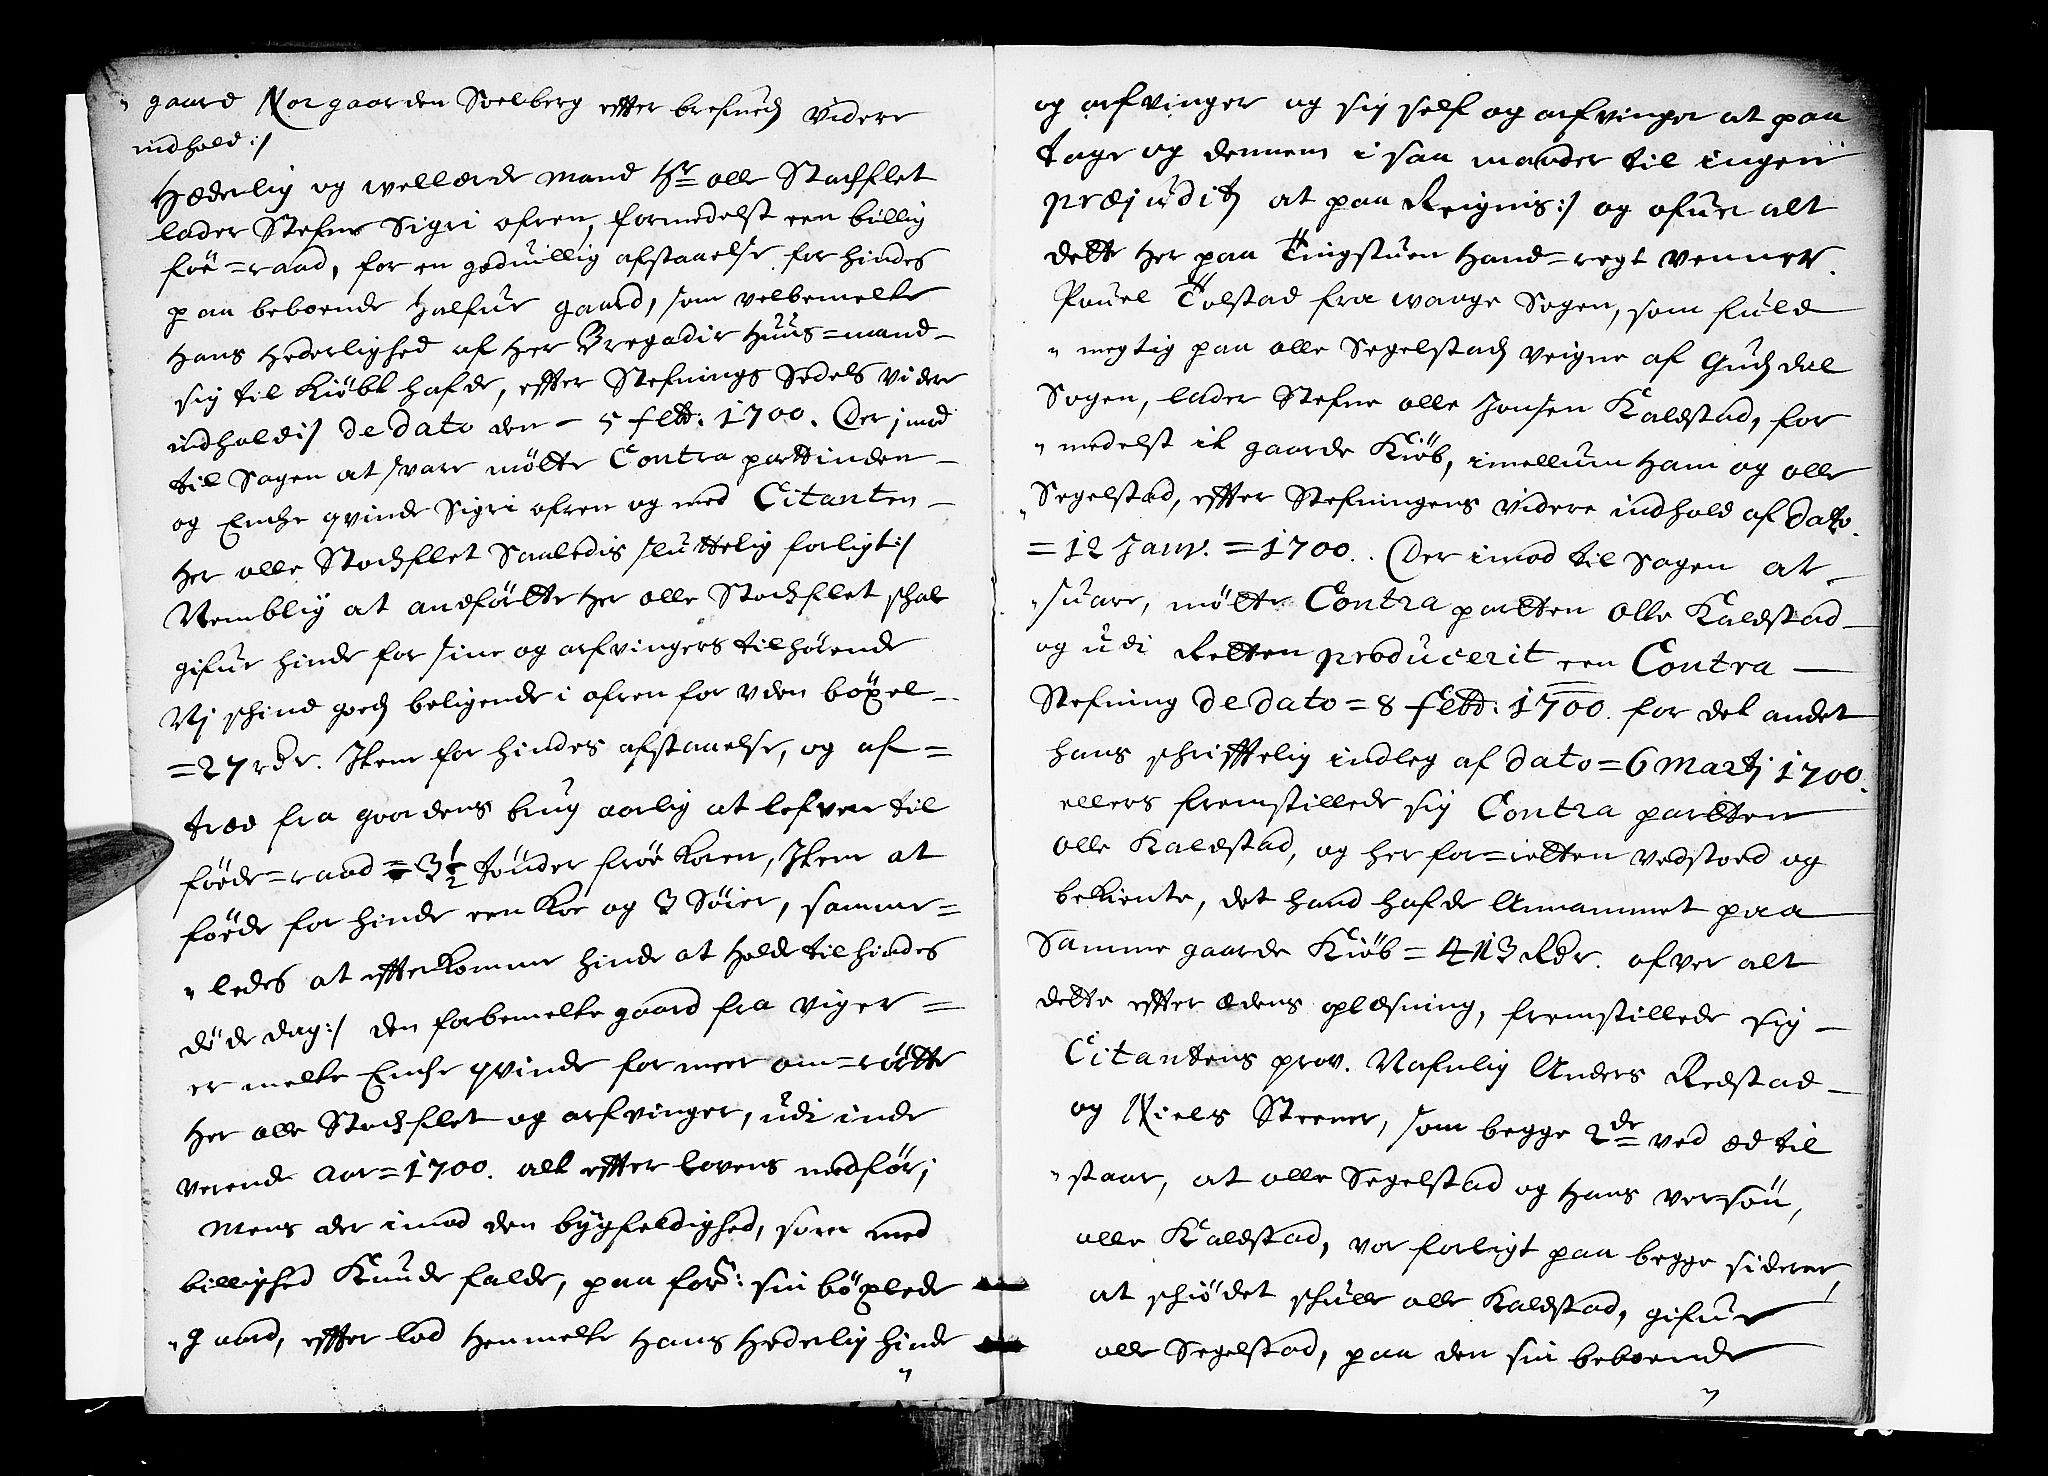 gaard Nor gaarden Soelberg effter brefuedz Videre
indhold:/
Hæderlig og wellærde mand Hr olle Stochflet
lader Stefne Sigri ofren, formedelst een billig
föe=raad, for en goduillig afstaaelse for hindes
paa beboende halfue gaard, som velbemelte
Hans Hederlighed af Her Bregadir Huus=mand
sig til Kiöbt hafde, effter Stefnings Sedels Videre
indhold:/ de dato den - 5 febb: 1700. Der imod
til Sagen at svare mötte Contra parttinden
og Enche qvinde Sigri ofren og med Citanten
Her olle Stochflet Saaledis sluttelig forligt:/
Nemblig at andförtte Her olle Stochflet schal
gifue hinde for sine og arfvingers tilhörende
Vj schind goedz beligende i ofren for vden böxel
=27 rdr. Item for hindes afstaaelse, og af=
træd fra gaardens brug aarlig at lefvere til
föede=raad = 3½ tönder fröe Koren, Item at
föede for hinde een Koe og 3 Söier, samme=
ledes at effterkomme hinde at Holde til hindes
döde dag:/ den forbemelte gaard fra viger=
er melte Enche qvinde for meer om=rörtte
Her olle Stochflet og arfvinger, udi inde
verende Aar=1700. alt effter lovens medför;
Mens der imod den bygfeldighed, som med
billighed Kunde falde, paa forsr: sin böxlede
gaard, effter lod Henmelte Hans Hederlig hinde
og arfvinger og sig self og arfvinger at paa
tage og dennem i saa maader til ingen
præjuditz at paa Reignis:/ og ofuer alt
dette her paa Tingstuen Hand=regt vennet.
Pouel Tolstad fra waage Sogen, som fuld
megtig paa olle Segelstadz veigne af Gudzdal
Sogen, lader Stefne olle Jonsen Kaldstad, for
medelst it gaarde Kiöb, imellum Ham og olle
Segelstad, effter Stefningens Videre indhold af dato
=12 Janv. =1700. Der imod til Sagen at
suare, mötte Contra partten olle Kaldstad
og udi Retten producerit een Contra
Stefning de dato = 8 febb: 1700. for det andet
hans schrifftelig indleg af dato = 6 Martj 1700.
ellers fremstillede sig Contra partten
olle Kaldstad, og her for=retten vedstoed og
bekiente, det hand hafde Annammet paa
Samme gaarde Kiöb = 413 Rdr. ofver alt
dette effter ædens oplæsning, fremstillede sig
Citantens prov. Nafnlig Anders Redstad
og Niels Steener, som begge 2de ved æd til
staar, at olle Segelstad og Hans versön,
olle Kaldstad, var forligt paa begge siderer,
at schiödet schulle olle Kaldstad, gifue
olle Segelstad, paa den sin beboende